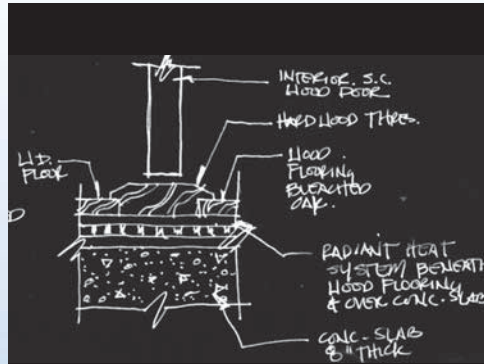 INTERIOR. S.C.
WOOD DOOR
HARDWOOD THRES.
WD.
FLOOR
WOOD
FLOORING
BLEACHED
OAK.
RADIANT HEAT
SYSTEM BENEATH
WOOD FLOORING
& OVER CONC. SLAB
CONC. SLAB
8" THICK